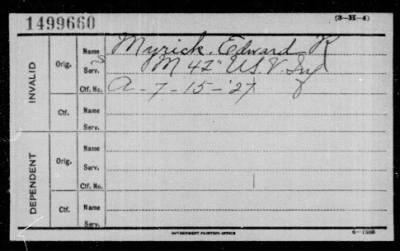 1499660
(3-H-4)
INVALID
Orig.
Name Myrick, Edward R
Serv. M 42" U.S.V. Inf
Ctf. No. A-7-15-'27
Ctf.
Name
Serv.
DEPENDENT
Orig.
Name
Serv.
Ctf. No.
Ctf.
Name
Serv.
GOVERNMENT PRINTING OFFICE